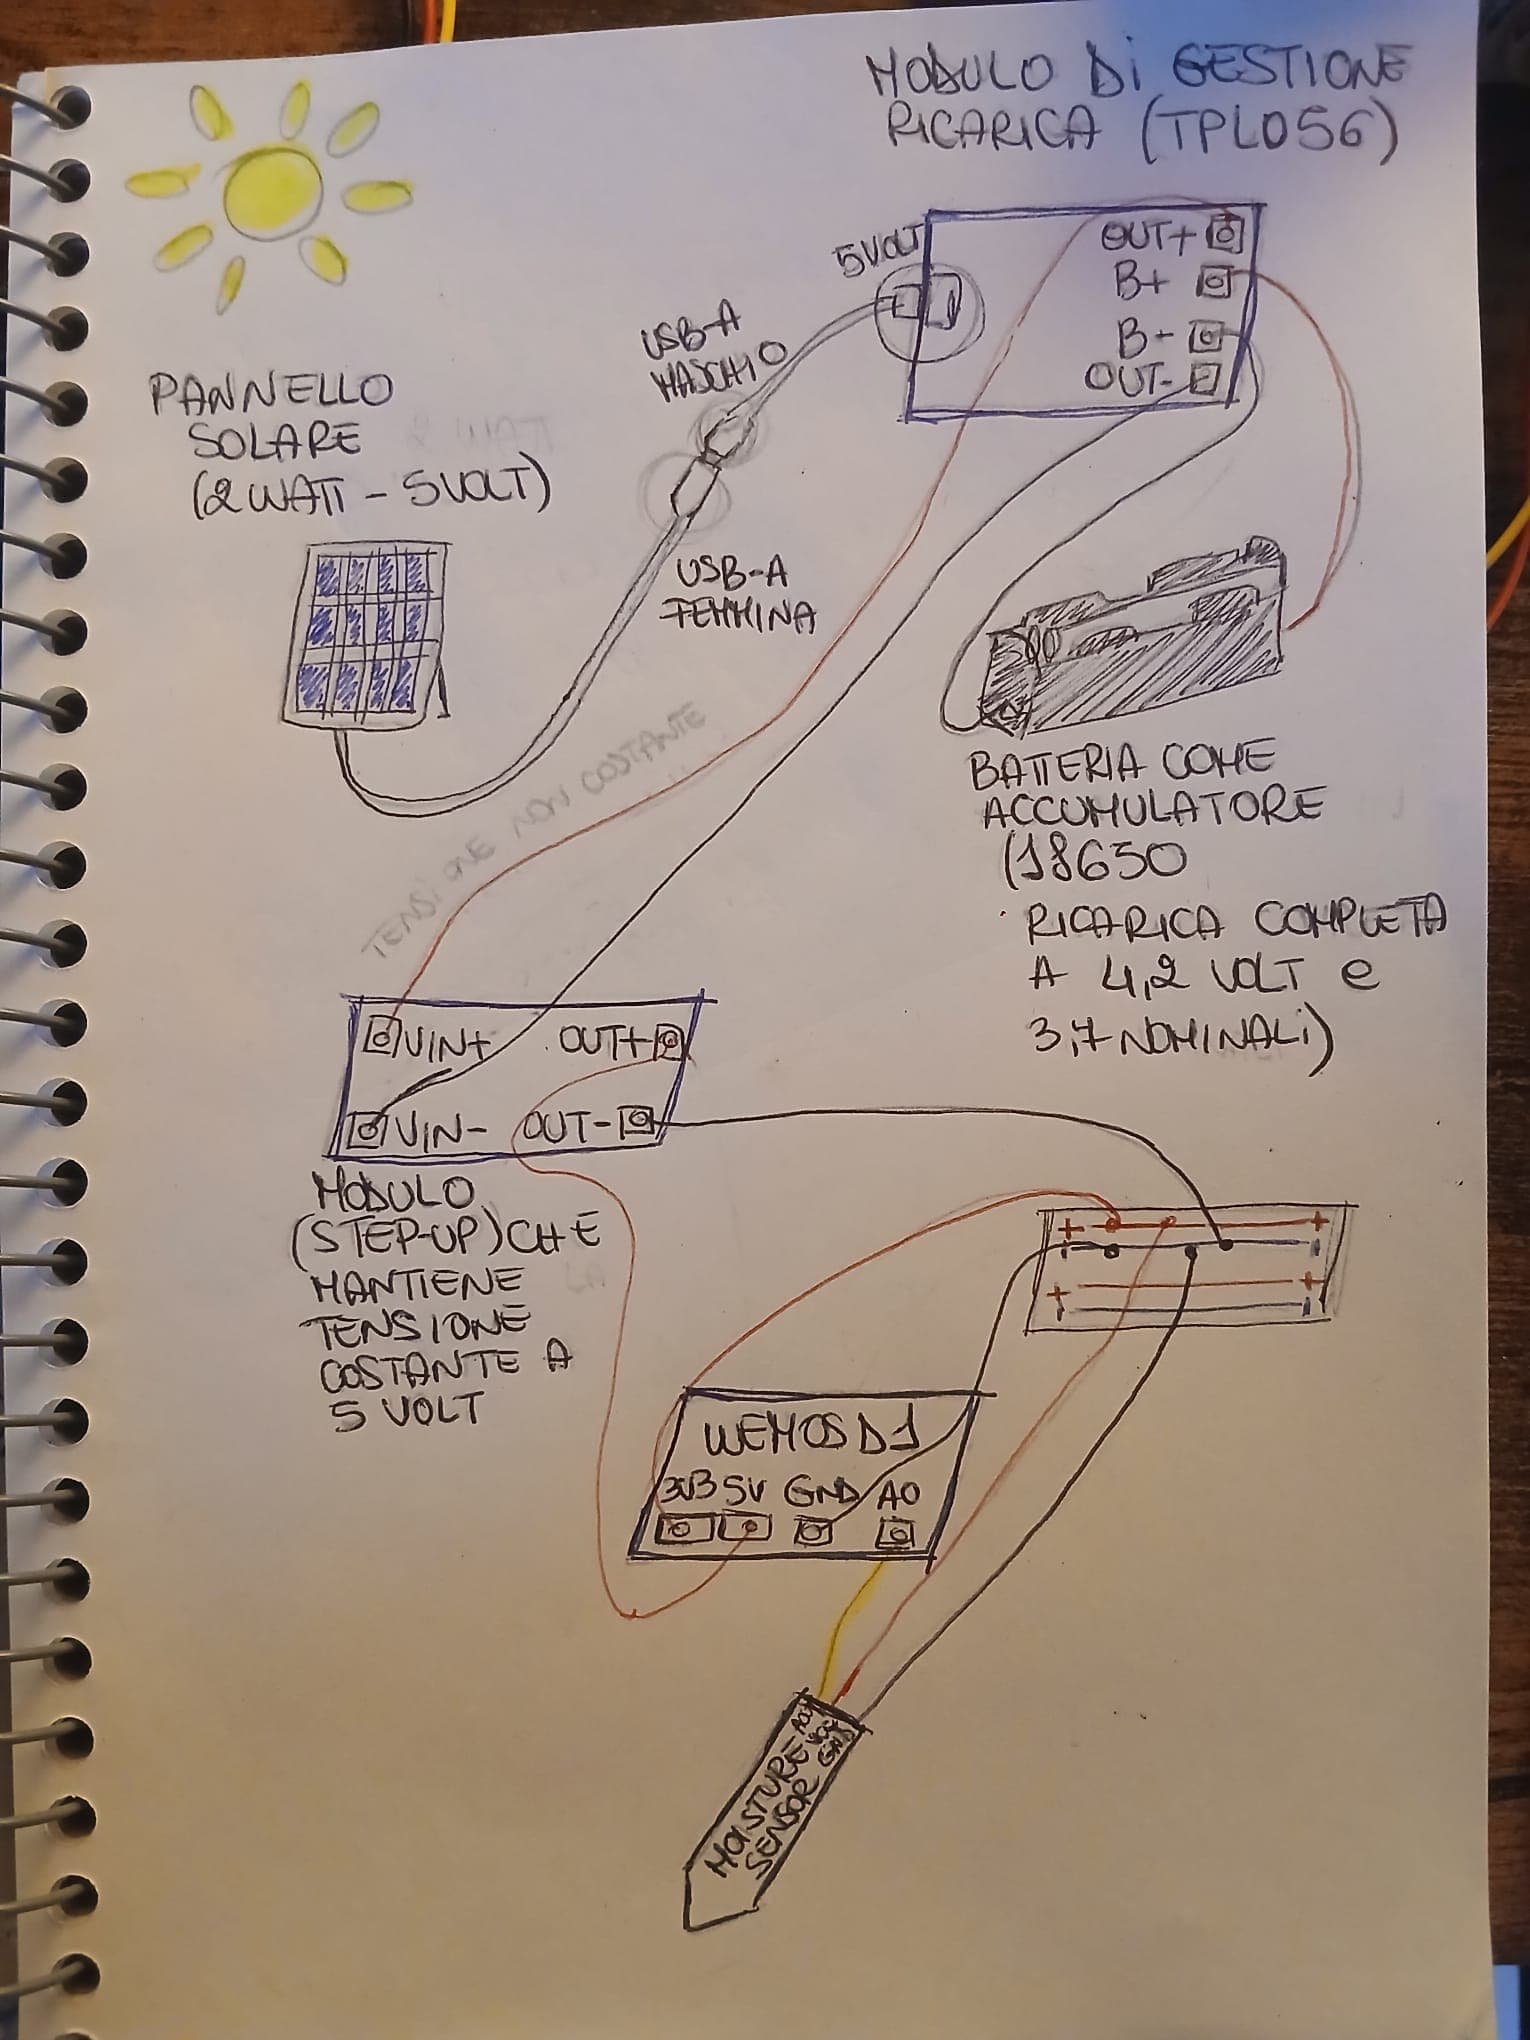 MODULO Di GESTIONE
RICARICA (TPL056)
5VOLT
OUT+
B+
B-
OUT-
USB-A
MASCHIO
PANNELLO
SOLARE
(2WATT - 5VOLT)
USB-A
FEMMINA
TENSIONE NON COSTANTE
BATTERIA COME
ACCUMULATORE
(18650
RICARICA COMPLETA
A 4,2 VOLT e
3,7 NOMINALi)
VIN+ OUT+
VIN- OUT-
MODULO
(STEP-UP) CHE
MANTIENE
TENSIONE
COSTANTE A
5 VOLT
+ +
- -
+ +
- -
WEMOS D1
3V3 5V GND A0
MOISTURE
SENSOR
VCC
GND